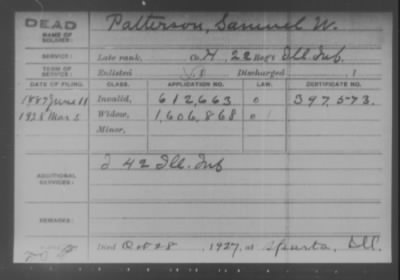 DEAD
NAME OF SOLDIER:
Patterson, Samuel W.
SERVICE:
Late rank, Co. H, 22 Reg't Ill. Inf.
TERM OF SERVICE:
Enlisted 186 Discharged 1
DATE OF FILING. CLASS. APPLICATION NO. LAW. CERTIFICATE NO.
1887 June 11 Invalid, 612,663 0 397,573.
1928 Mar 5 Widow, 1,606,868 0
Minor,
ADDITIONAL SERVICES:
I 42 Ill. Inf
REMARKS:
Died Oct 28, 1927, at Sparta, Ill.